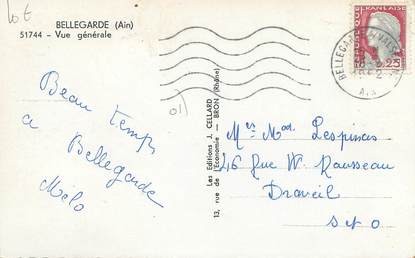 Lot
BELLEGARDE (Ain)
51744 - Vue générale
Beau temps
a Bellegarde
Melo
Les Editions J. CELLARD
13, rue de l'Economie — BRON (Rhône)
FRANÇAISE
BELLEGARDE
AIN
Mrs Mad Lespinas
46 Rue W. Rousseau
Draveil
S et O